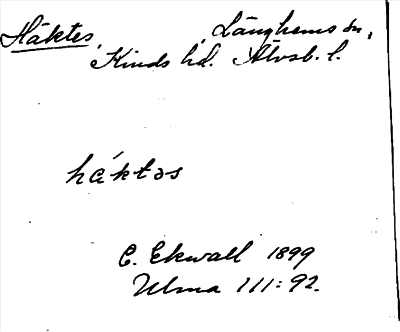 Häktes, Länghems sn,
Kinds hd. Älvsb. l.
háktəs
E. Ekwall 1899
Ulma 111:92.